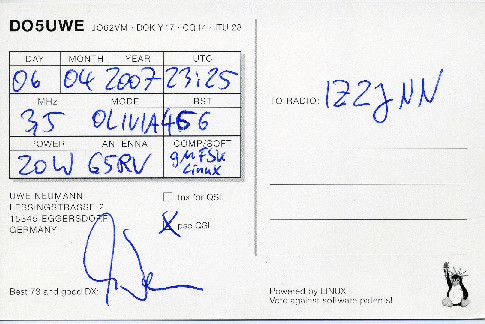 DO5UWE JO62VM · DOK Y17 · CQ 14 · ITU 28
DAY MONTH YEAR UTC
06 04 2007 23:25
MHz MODE RST
3,5 OLIVIA 456
POWER ANTENNA COMP/SOFT
20W G5RV gMFSK
Linux
TO RADIO: IZ2JNN
UWE NEUMANN
LESSINGSTRASSE 2
15345 EGGERSDORF
GERMANY
tnx for QSL
pse QSL
Best 73 and good DX:
Powered by LINUX
Vote against software patents!